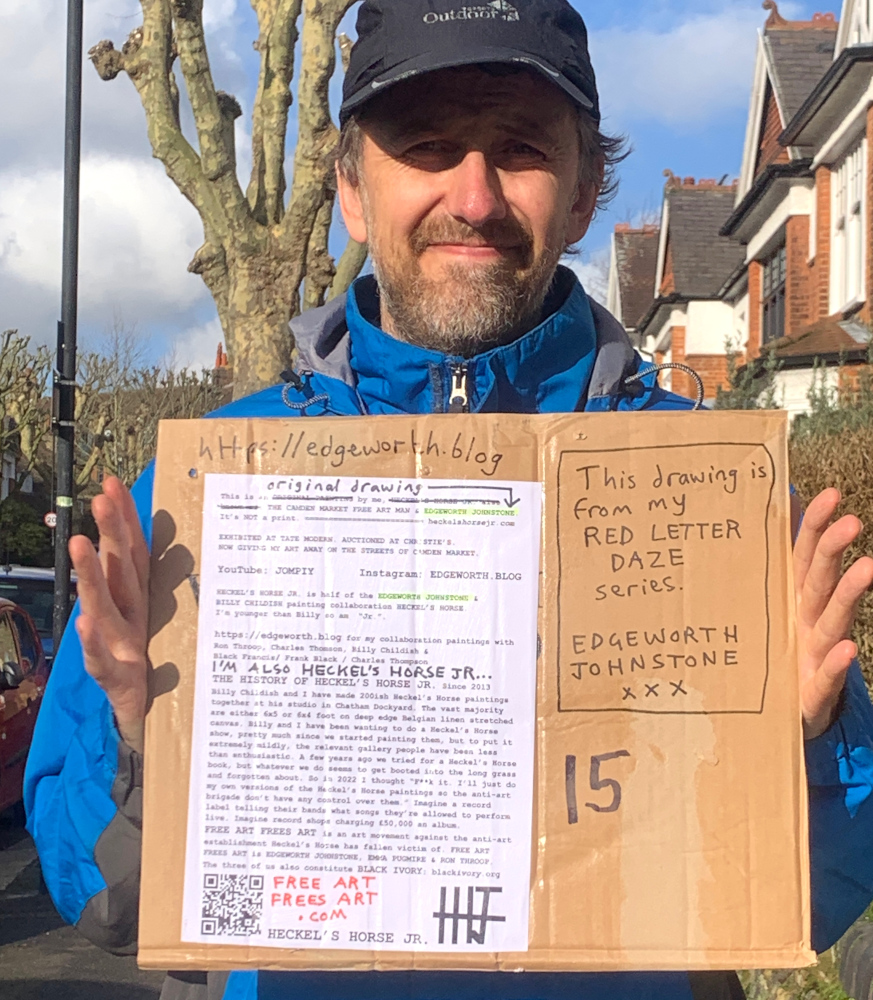 Outdoor
https://edgeworth.blog
original drawing
This is an ORIGINAL PAINTING by me, HECKEL'S HORSE JR. also
THE CAMDEN MARKET FREE ART MAN & EDGEWORTH JOHNSTONE.
It's NOT a print. heckelshorsejr.com
EXHIBITED AT TATE MODERN. AUCTIONED AT CHRISTIE'S.
NOW GIVING MY ART AWAY ON THE STREETS OF CAMDEN MARKET.
YouTube: JOMPIY Instagram: EDGEWORTH.BLOG
HECKEL'S HORSE JR. is half of the EDGEWORTH JOHNSTONE &
BILLY CHILDISH painting collaboration HECKEL'S HORSE
I'm younger than Billy so am "Jr.".
https://edgeworth.blog for my collaboration paintings with
Ron Throop, Charles Thomson, Billy Childish &
Black Francis/ Frank Black / Charles Thompson
I'M ALSO HECKEL'S HORSE JR...
THE HISTORY OF HECKEL'S HORSE JR. Since 2013
Billy Childish and I have made 200ish Heckel's Horse paintings
together at his studio in Chatham Dockyard. The vast majority
are either 6x5 or 6x4 foot on deep edge Belgian linen stretched
canvas. Billy and I have been wanting to do a Heckel's Horse
show, pretty much since we started painting them, but to put it
extremely mildly, the relevant gallery people have been less
than enthusiastic. A few years ago we tried for a Heckel's Horse
book, but whatever we do seems to get booted into the long grass
and forgotten about. So in 2022 I thought "F**k it. I'll just do
my own versions of the Heckel's Horse paintings so the anti-art
brigade don't have any control over them." Imagine a record
label telling their bands what songs they're allowed to perform
live. Imagine record shops charging £50,000 an album.
FREE ART FREES ART is an art movement against the anti-art
establishment Heckel's Horse has fallen victim of. FREE ART
FREES ART is EDGEWORTH JOHNSTONE, EMMA PUGMIRE & RON THROOP.
The three of us also constitute BLACK IVORY: blackivory.org
FREE ART
FREES ART
.COM
HECKEL'S HORSE JR.
This drawing is
from my
RED LETTER
DAZE
series.
EDGEWORTH
JOHNSTONE
xxx
15
20